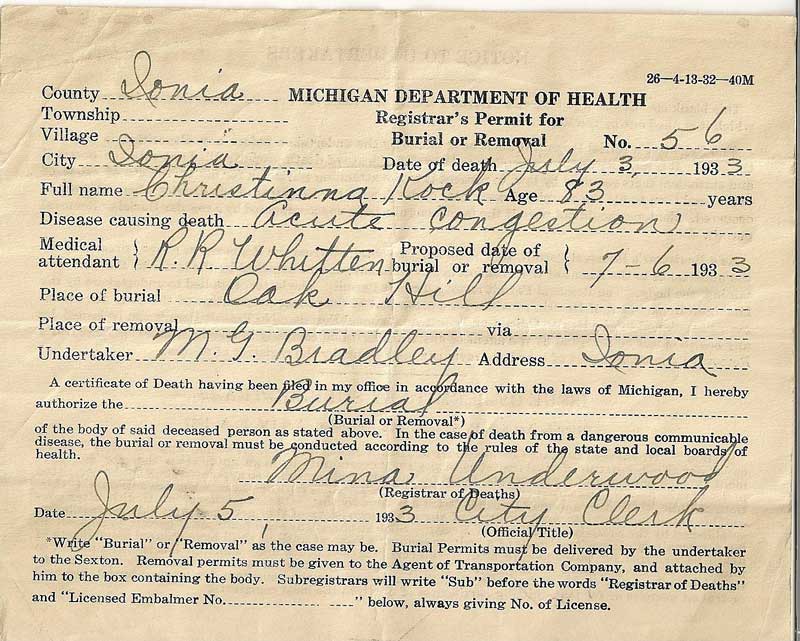 26—4-13-32—40M
County Ionia MICHIGAN DEPARTMENT OF HEALTH
Township Registrar's Permit for
Village Burial or Removal No. 56
City Ionia Date of death July 3, 1933
Full name Christinna Kock Age 83 years
Disease causing death Acute congestion
Medical attendant } R. R Whitten Proposed date of burial or removal { 7-6 1933
Place of burial Oak Hill
Place of removal via
Undertaker M. G. Bradley Address Ionia
A certificate of Death having been filed in my office in accordance with the laws of Michigan, I hereby
authorize the Burial
(Burial or Removal*)
of the body of said deceased person as stated above. In the case of death from a dangerous communicable
disease, the burial or removal must be conducted according to the rules of the state and local boards of
health.
Mina Underwood
(Registrar of Deaths)
Date July 5, 1933 City Clerk
(Official Title)
*Write "Burial" or "Removal" as the case may be. Burial Permits must be delivered by the undertaker
to the Sexton. Removal permits must be given to the Agent of Transportation Company, and attached by
him to the box containing the body. Subregistrars will write "Sub" before the words "Registrar of Deaths"
and "Licensed Embalmer No. " below, always giving No. of License.